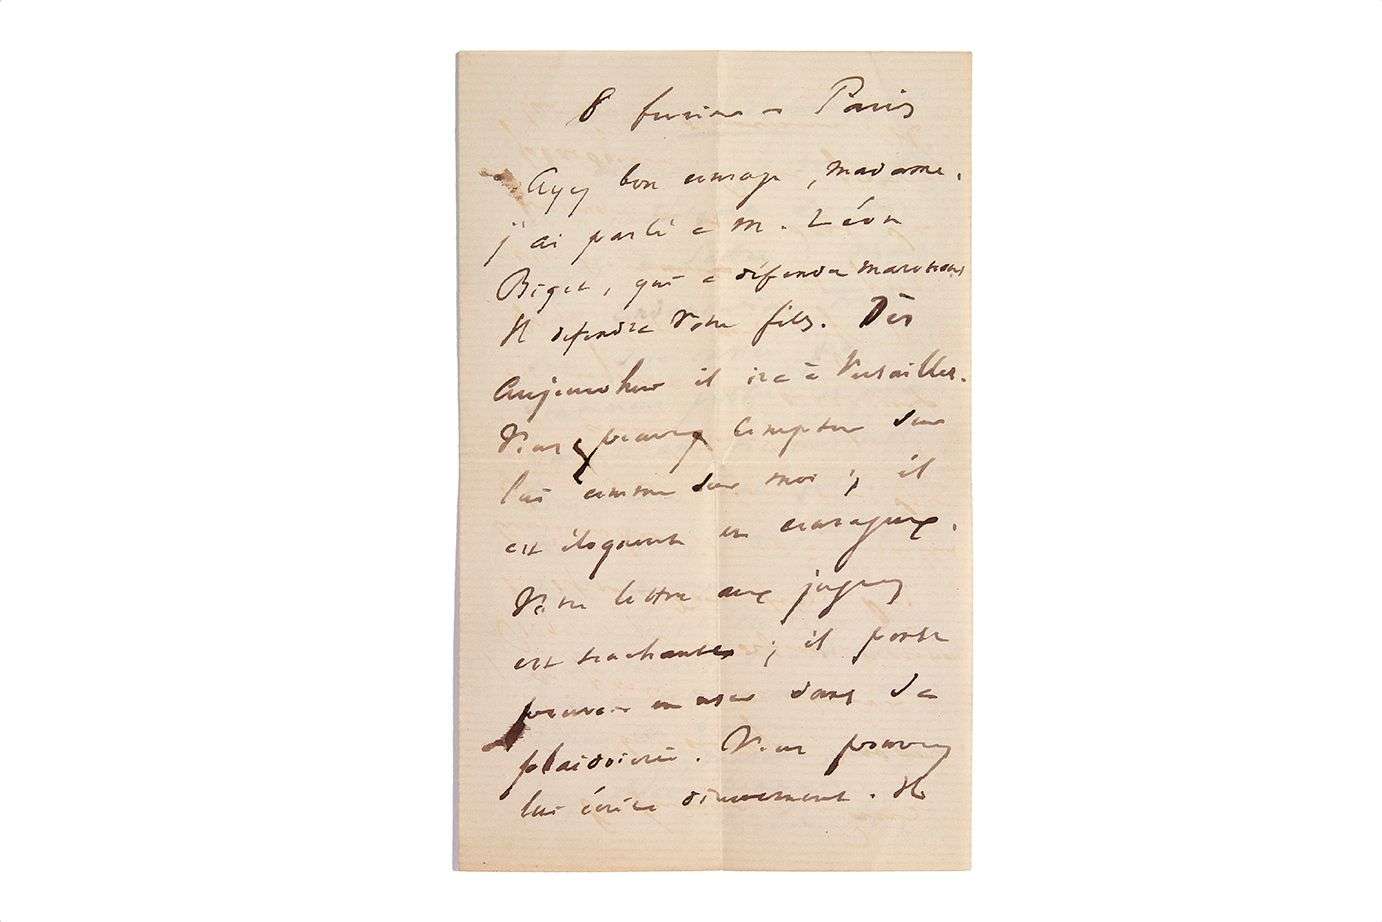 8 février – Paris
Ayez bon courage, madame.
j'ai parlé à M. Léon
Bigot, qui a défendu maroteau
Il défendra votre fils. Dès
aujourd'hui il ira à Versailles.
Vous pouvez compter sur
lui comme sur moi ; il
est éloquent et courageux.
Votre lettre aux juges
est touchante ; il pourra
pouvoir en user dans sa
plaidoirie. Vous pouvez
lui écrire directement. Il